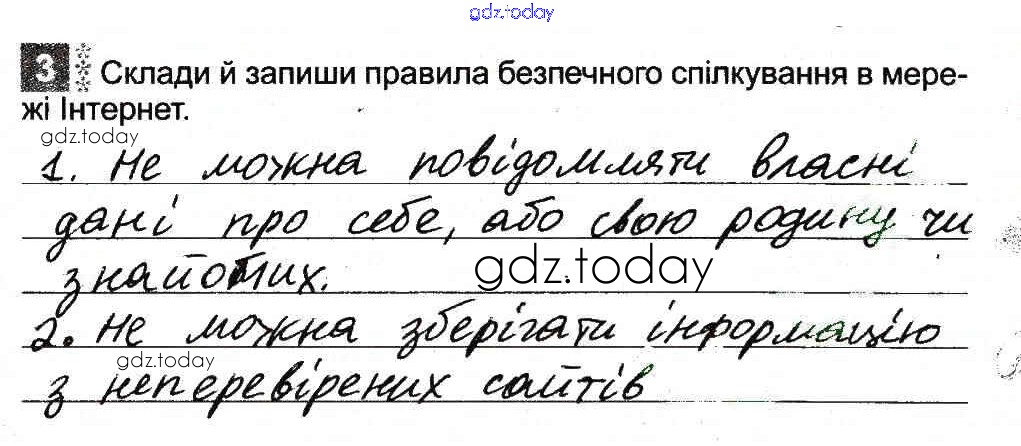 gdz.today
3 Склади й запиши правила безпечного спілкування в мере-
жі Інтернет.
gdz.today
1. Не можна повідомляти власні
дані про себе, або свою родину чи
знайомих.
gdz.today
2. Не можна зберігати інформацію
gdz.today
з неперевірених сайтів